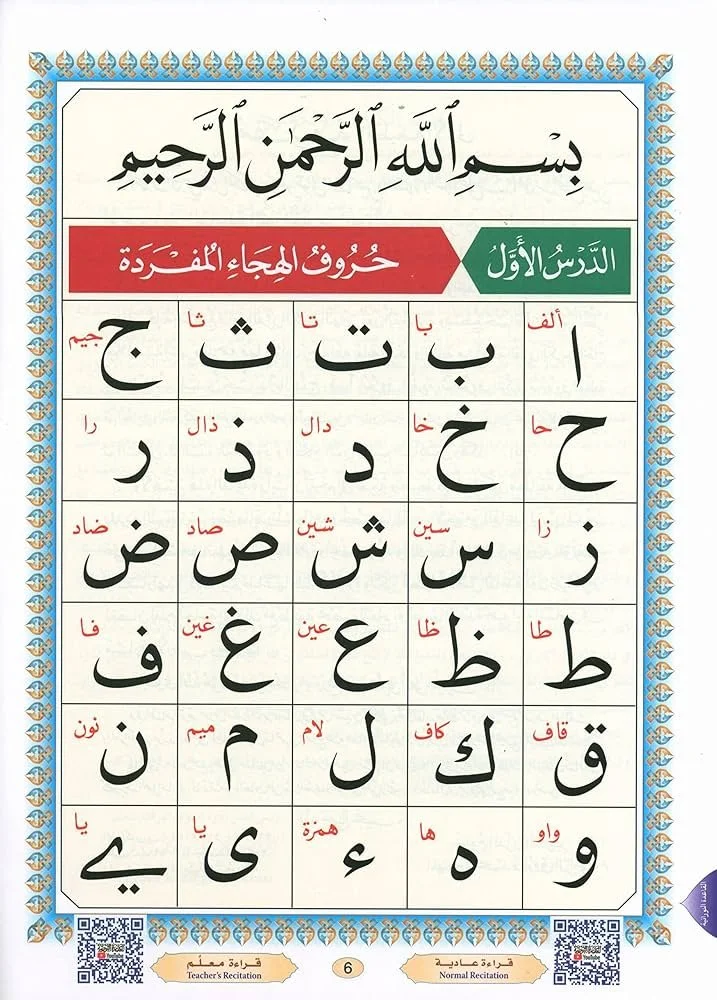 بِسْمِ ٱللَّهِ ٱلرَّحْمَٰنِ ٱلرَّحِيمِ
الدَّرْسُ الأَوَّلُ حُرُوفُ الهِجَاءِ المُفْرَدَةِ
ا ألف ب با ت تا ث ثا ج جيم
ح حا خ خا د دال ذ ذال ر را
ز زا س سين ش شين ص صاد ض ضاد
ط طا ظ ظا ع عين غ غين ف فا
ق قاف ك كاف ل لام م ميم ن نون
و واو ه ها ء همزة ى يا ے يا
القاعدة النورانية
قراءة عادية
Normal Recitation
6
قراءة معلّم
Teacher's Recitation
YouTube
YouTube